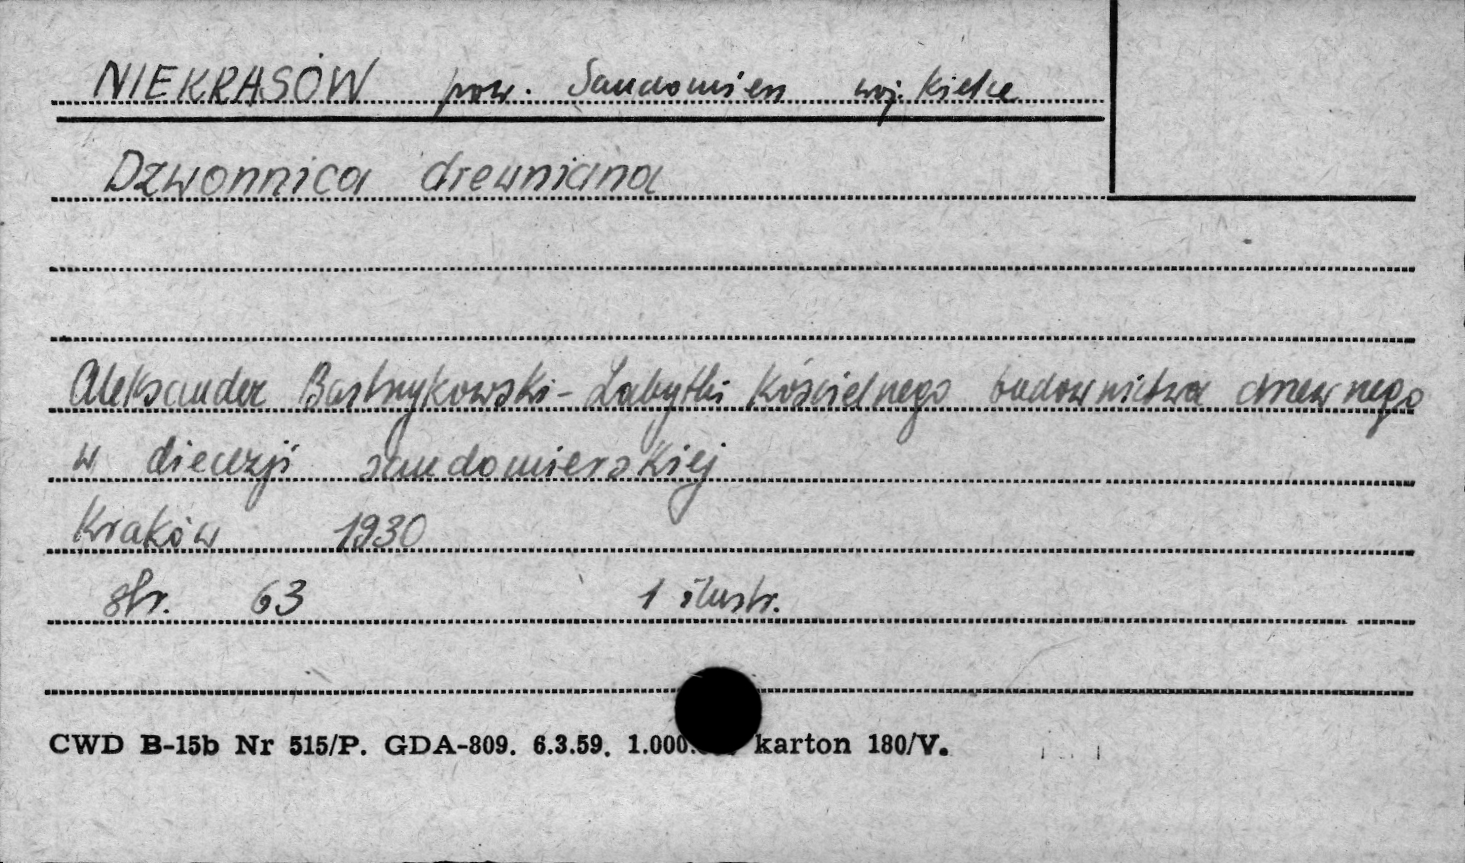 NIEKRASÓW pow. Sandomierz woj. Kielce
Dzwonnica drewniana
Aleksander Bastrzykowski - Zabytki Kościelnego budownictwa drewnego
w diecezji sandomierskiej
Kraków 1930
str. 63 1 ilustr.
CWD B-15b Nr 515/P. GDA-809. 6.3.59. 1.000. karton 180/V.